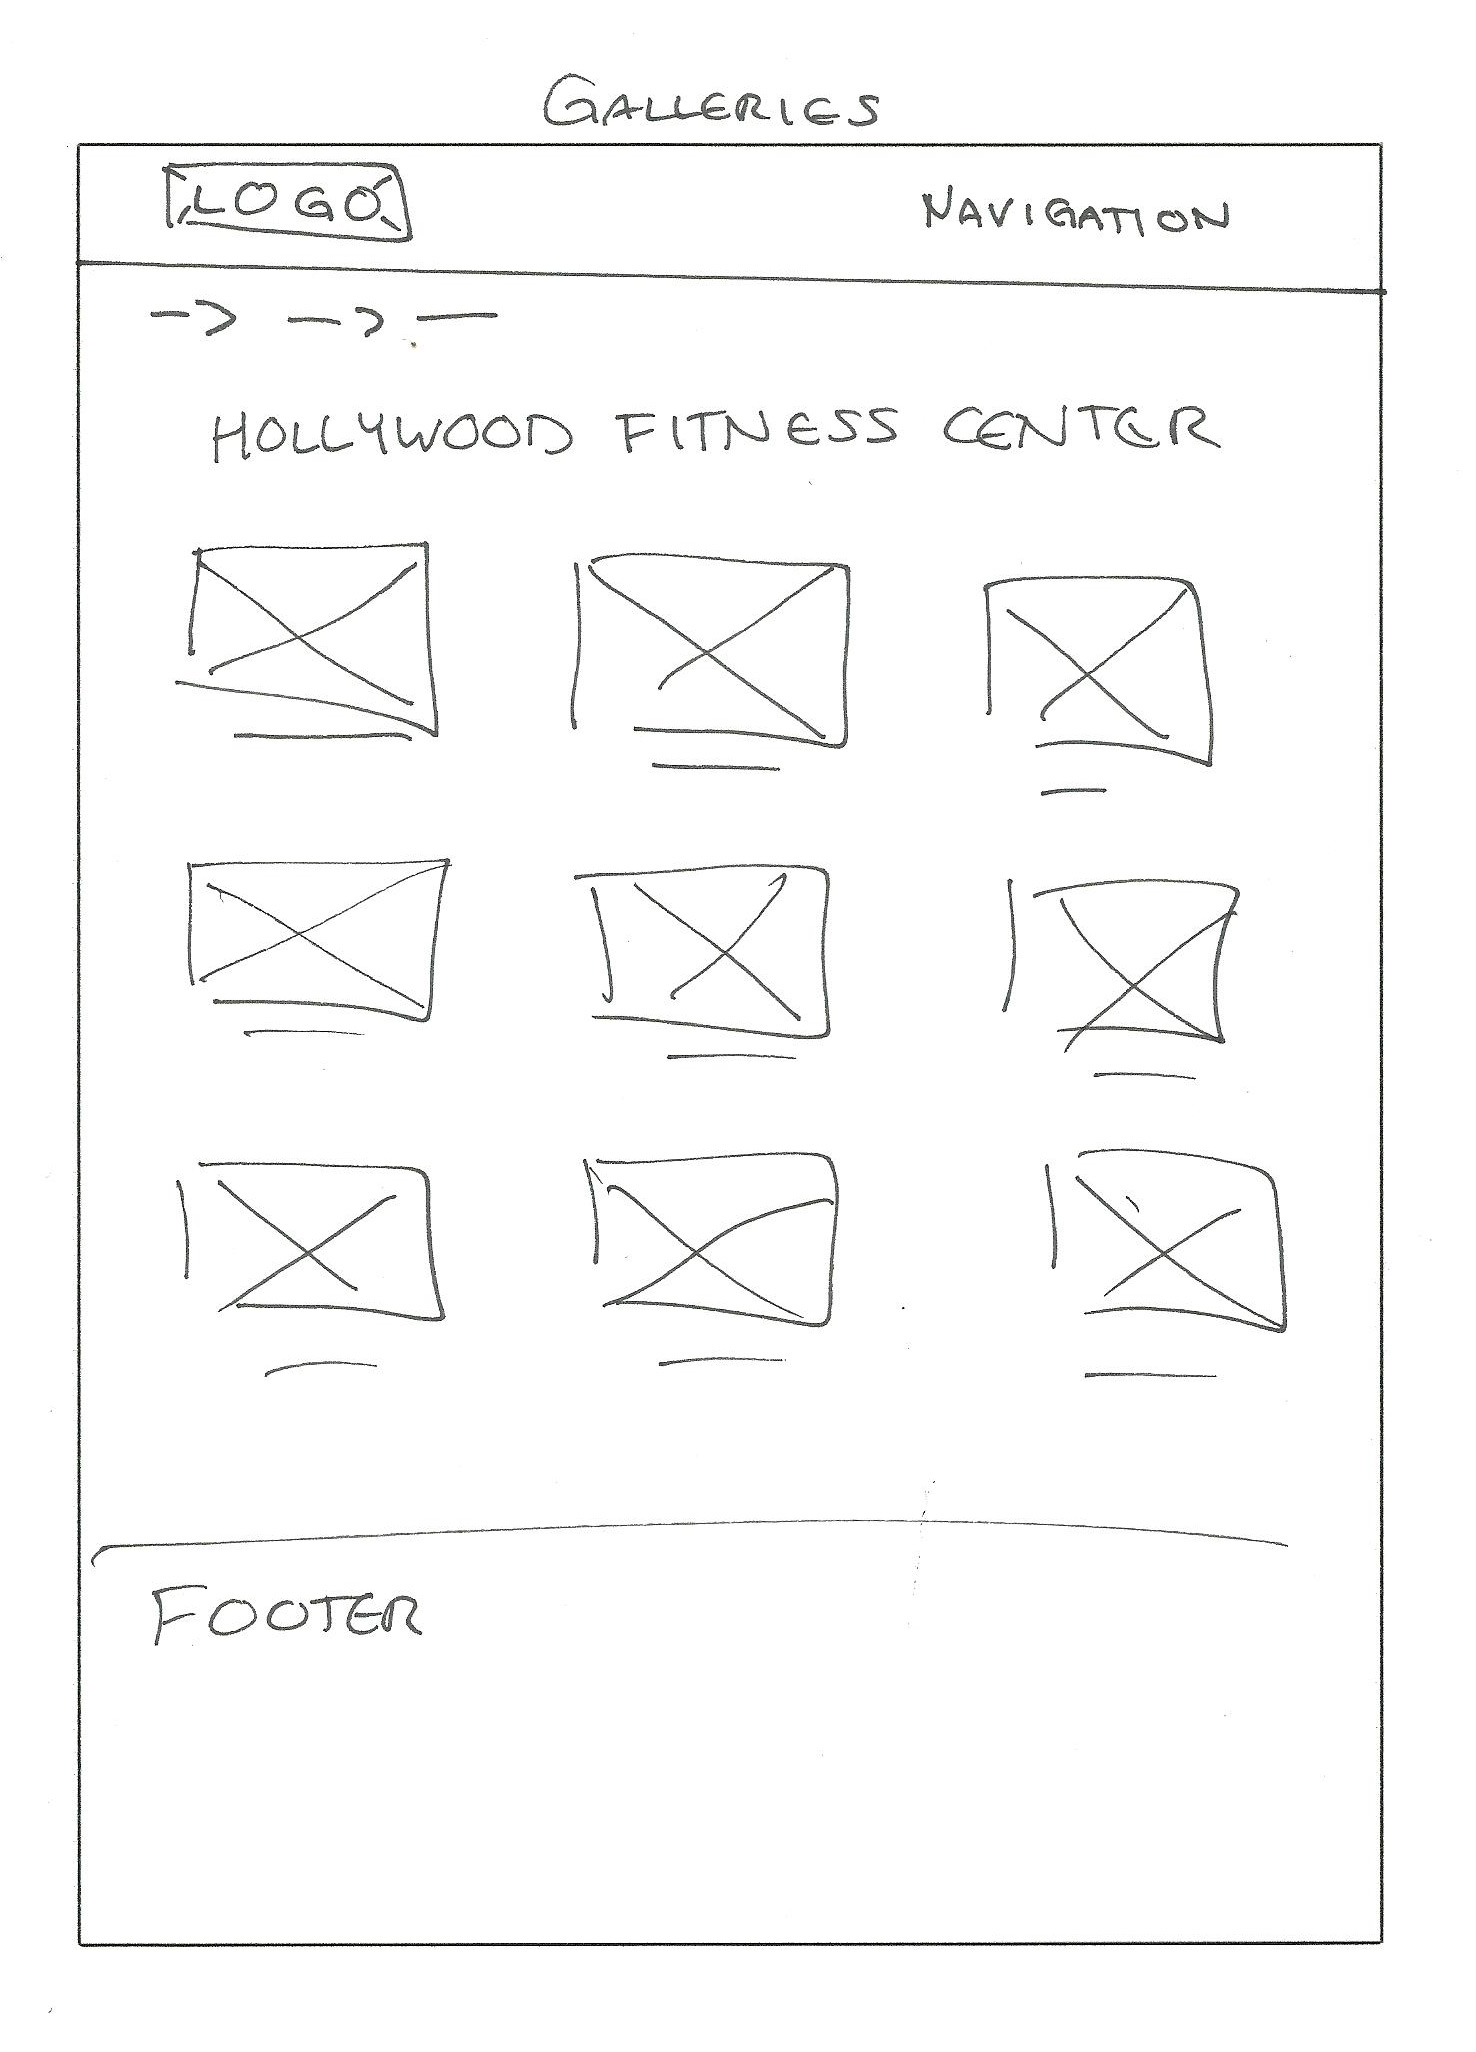 GALLERIES
LOGO
NAVIGATION
HOLLYWOOD FITNESS CENTER
FOOTER